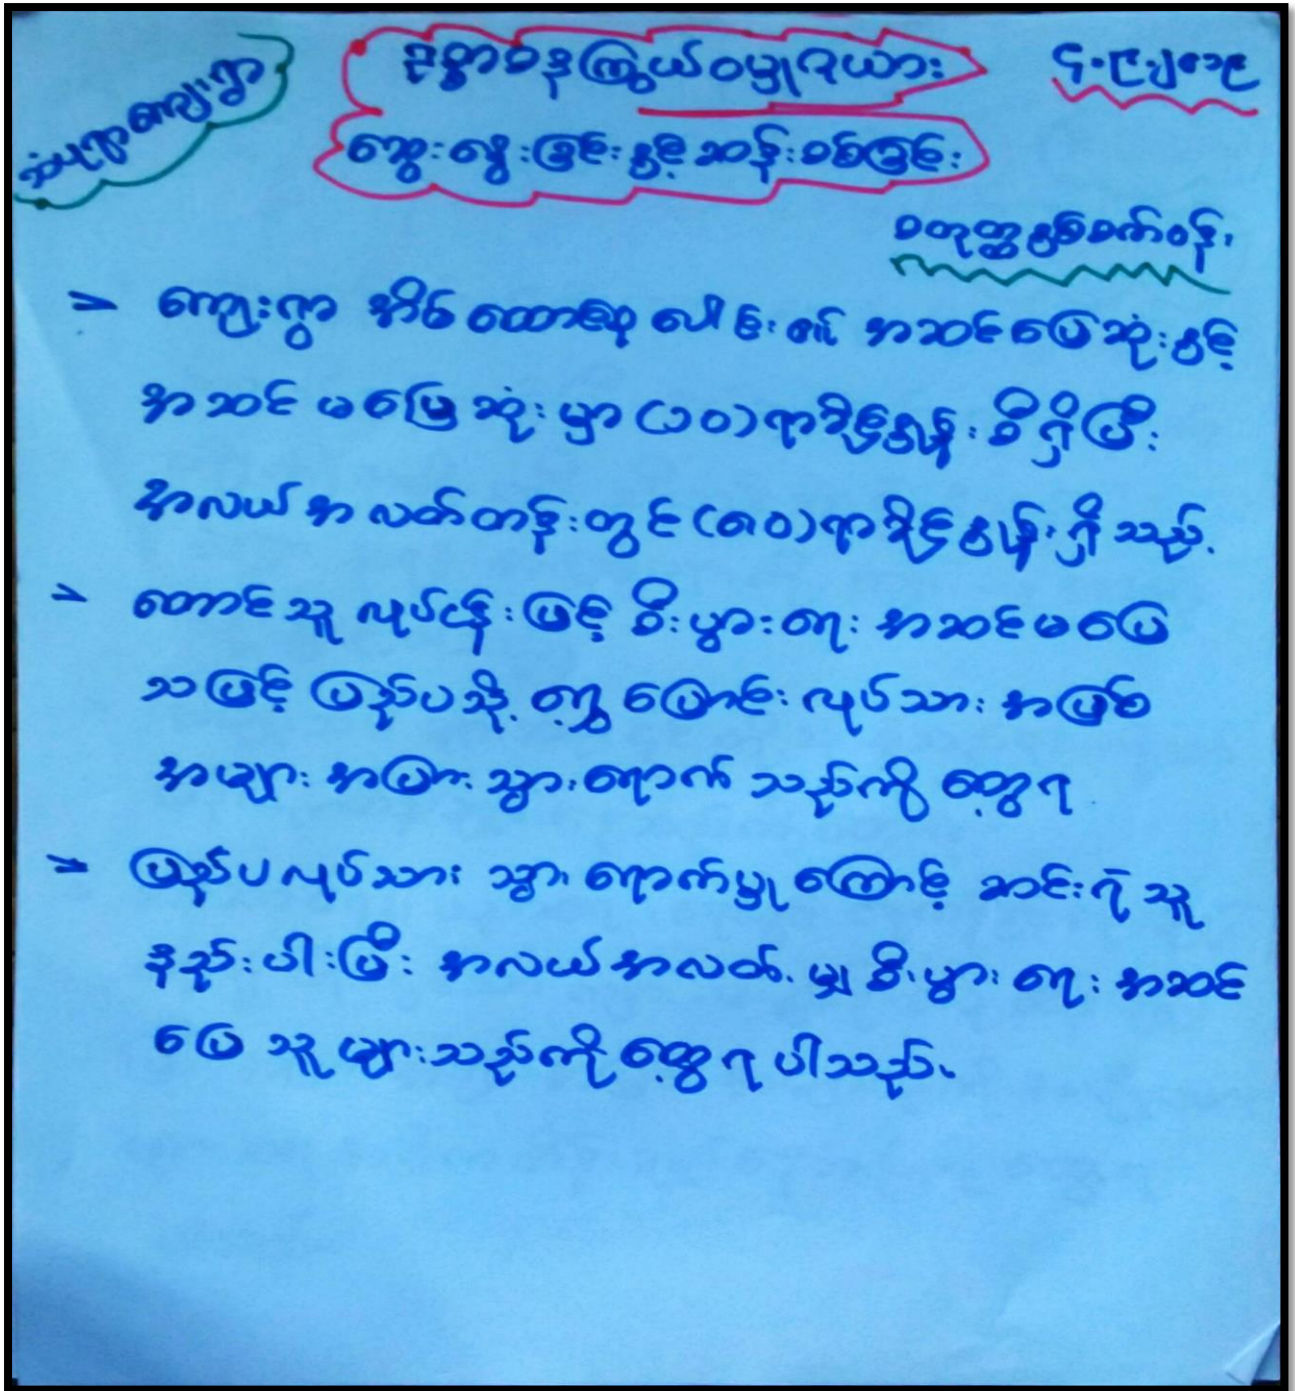 ဥစ္စာဓနကြွယ်ဝမှုဇယား
၄.၉.၂၀၁၉
ဆွေးနွေးခြင်းနှင့်ဆန်းစစ်ခြင်း
စတုတ္ထနှစ်စက်ဝန်း
➢ ကျေးရွာ အိမ်ထောင်စုပေါင်း၏ အဆင်ပြေဆုံးနှင့်
အဆင်မပြေဆုံးမှာ (၁၀) ရာခိုင်နှုန်းစီရှိပြီး
အလယ်အလတ်တန်းတွင် (၈၀) ရာခိုင်နှုန်းရှိသည်.
➢ တောင်သူလုပ်ငန်းဖြင့် စီးပွားရေး အဆင်မပြေ
သဖြင့် ပြည်ပသို့ ရွှေ့ပြောင်းလုပ်သား အဖြစ်
အများအပြားသွားရောက်သည်ကို တွေ့ရ
➢ ပြည်ပလုပ်သား သွားရောက်မှုကြောင့် ဆင်းရဲသူ
နည်းပါးပြီး အလယ်အလတ်မျှ စီးပွားရေး အဆင်
ပြေသူများသည်ကို တွေ့ရပါသည်.